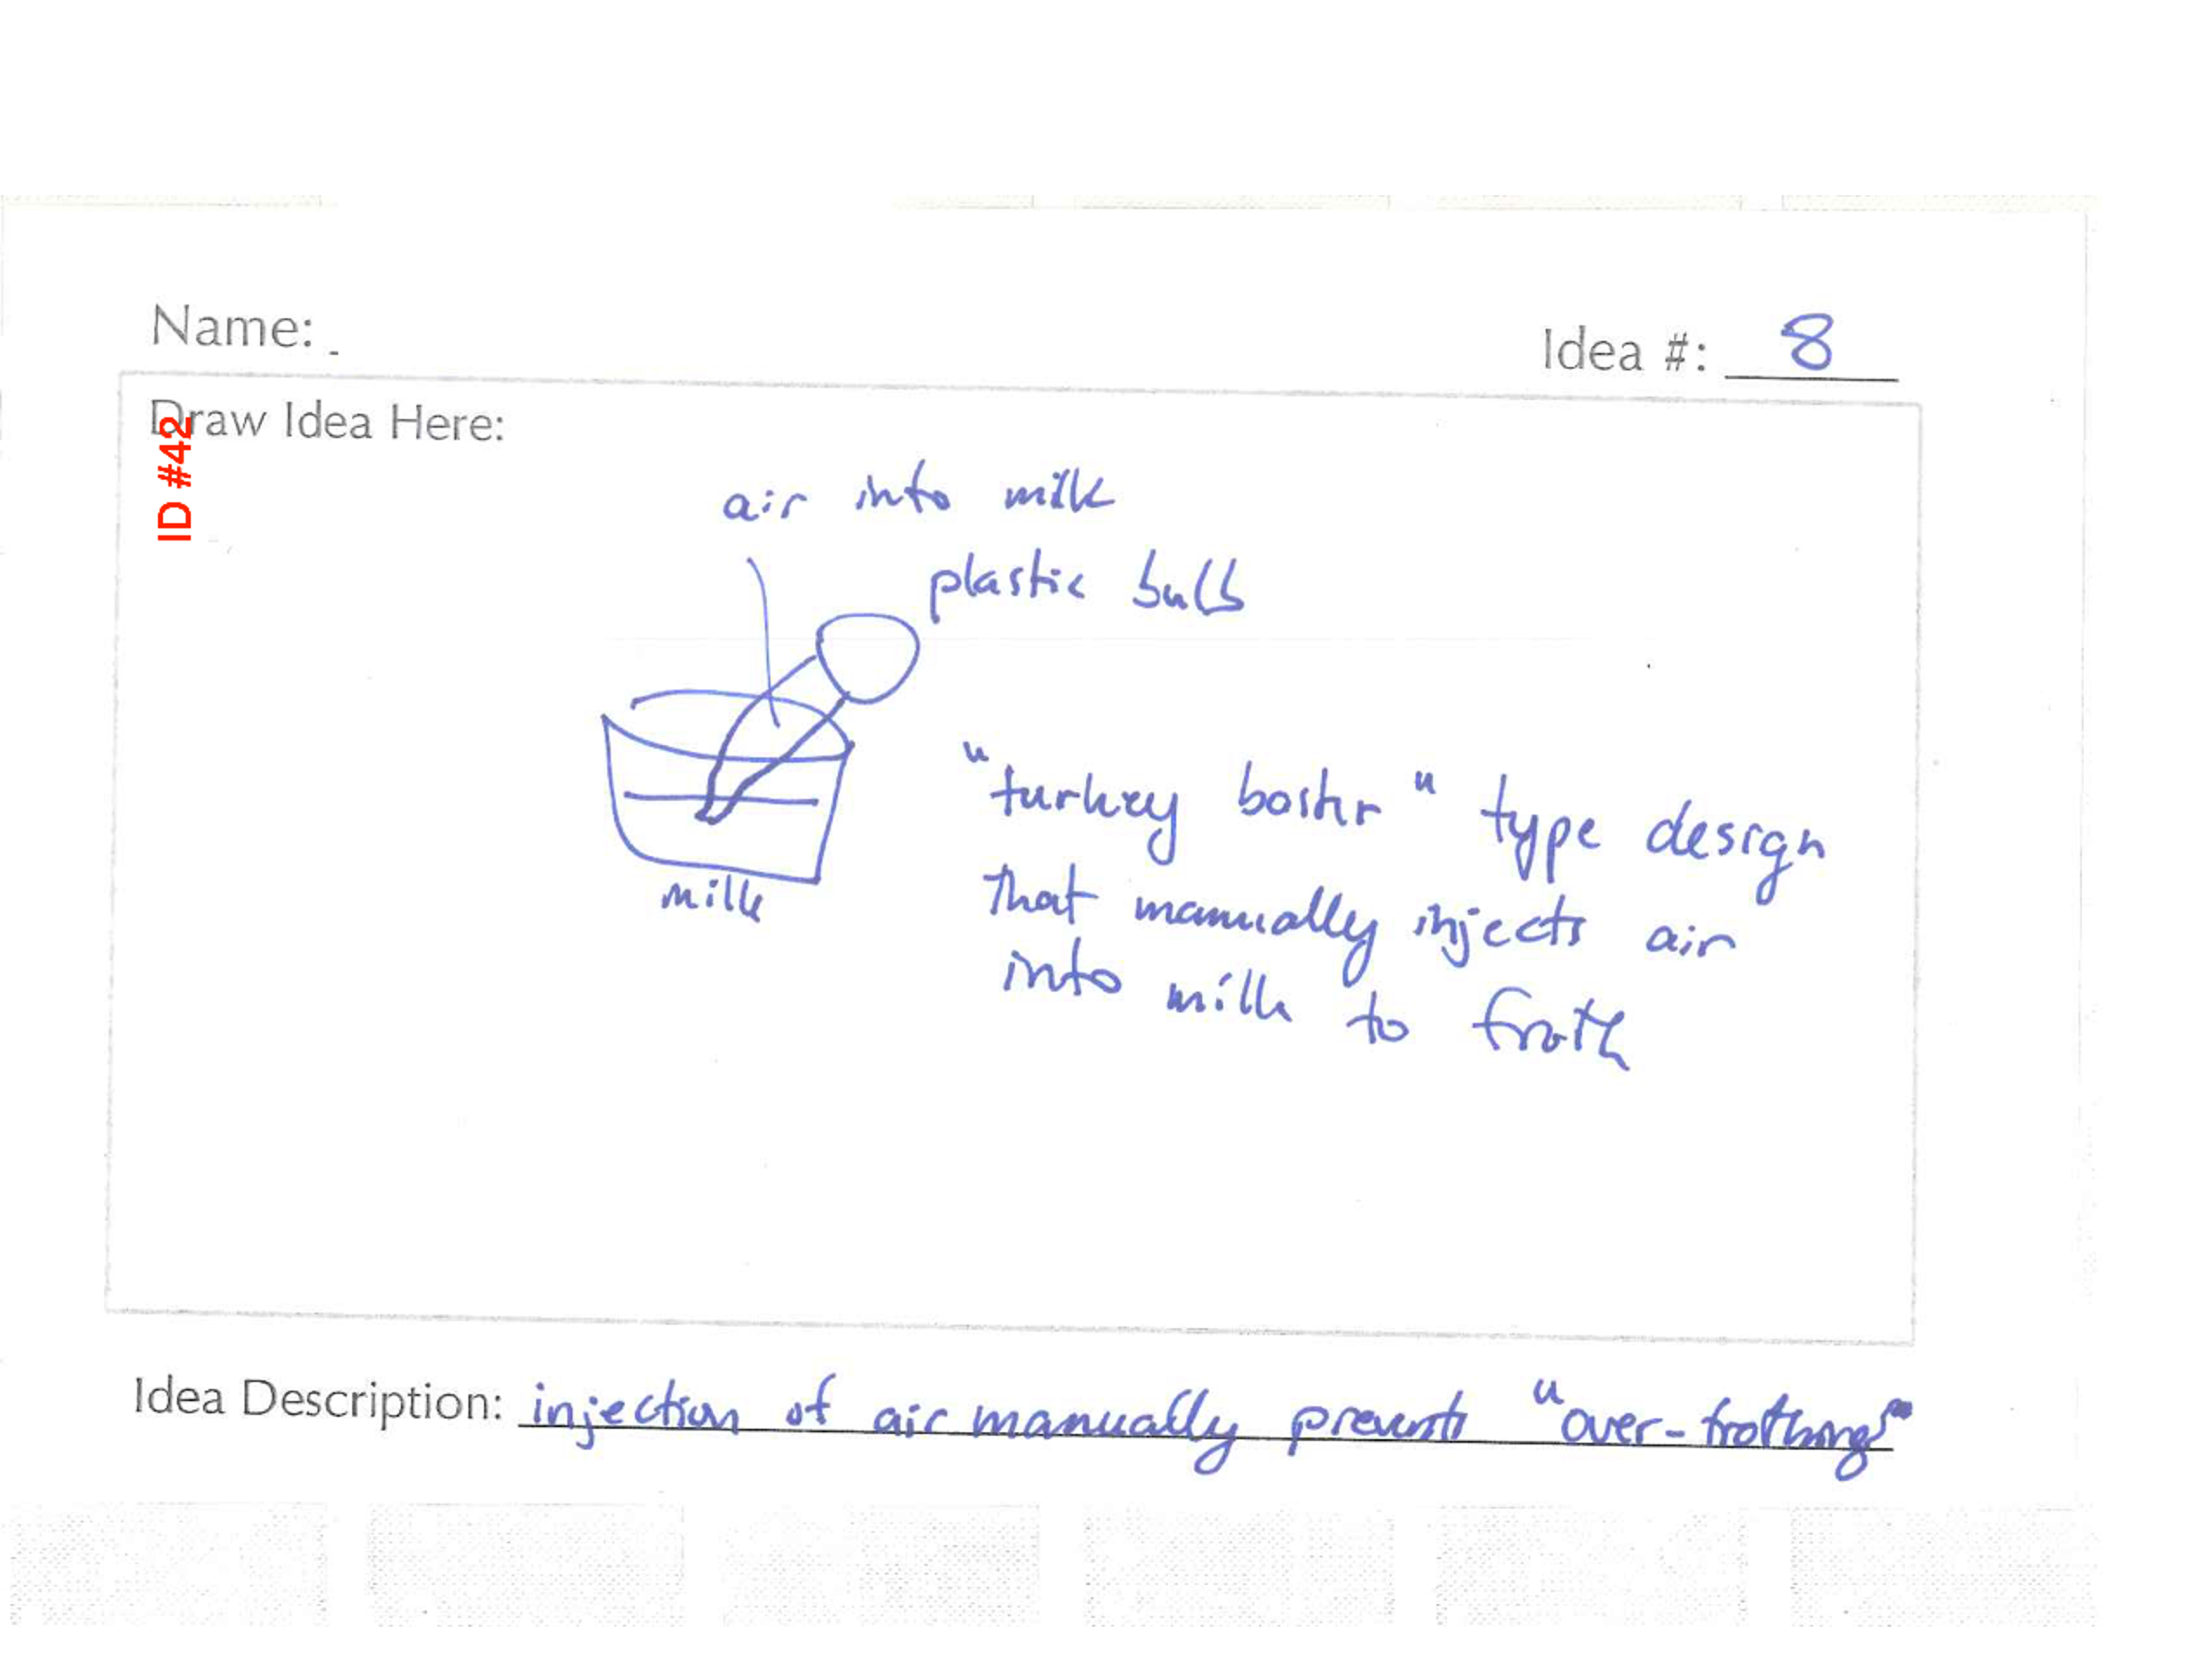 Name:
Idea #: 8
Draw Idea Here:
ID #42
air into milk
plastic bulb
"turkey baster" type design
that manually injects air
into milk to froth
milk
Idea Description: injection of air manually prevents "over-frothing"